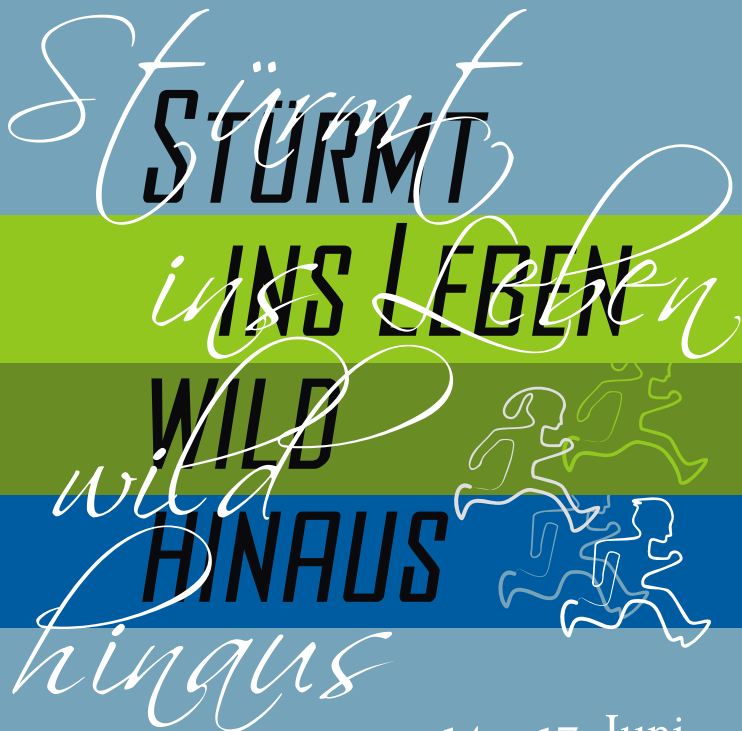 Stürmt
STÜRMT
ins Leben
INS LEBEN
WILD
wild
HINAUS
hinaus
Juni